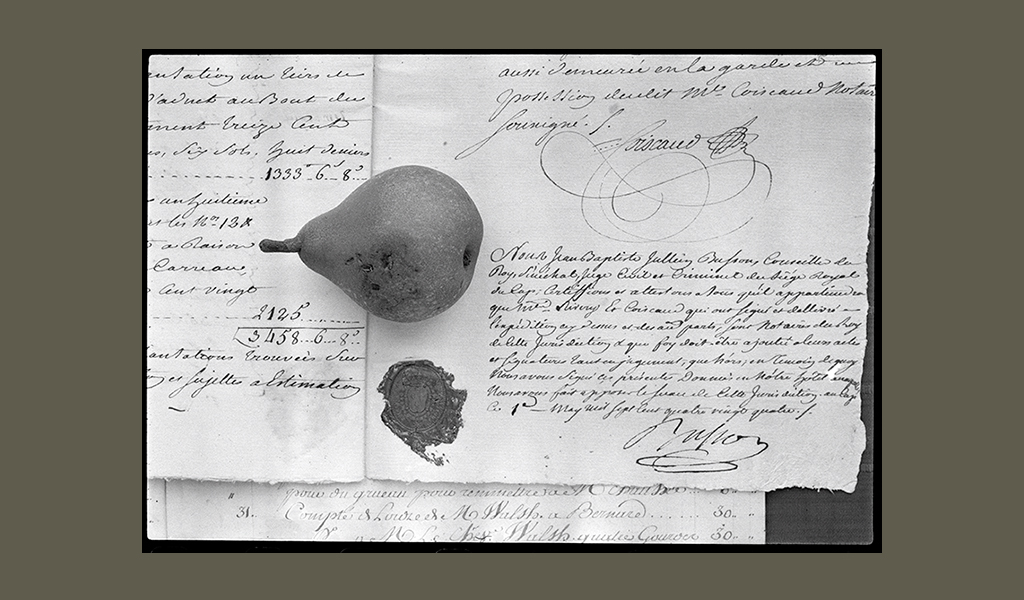 antation un tiers de
d'aduet au Bout du
ment treize Cent
Six Sols, huit deniers
1333. 6. 8.
un huitieme
et les Nos 13
a Raison
Carreau
Cent vingt
2125.
3458. 6. 8.
antations trouvées Sur
et sujettes a Estimation
aussi demeurée en la garde et
possession dudit Me. Coiscaud Notaire
Soussigné.
Coiscaud
Nous Jean Baptiste Jullien Busson, Conseiller du
Roy, Sénéchal, Juge Civil et Criminel du Siége Royal
du Cap; Certiffions et attestons a tous qu'il appartiendra
que Mes. et Coiscaud qui ont signé et dellivré
l'expédition cy dessus et des autres parts, sont Notaires du Roy
de Cette Jurisdiction & que foy doit être ajoutée a leurs actes
et Signatures tant en jugement, que hors; en Temoin de quoy
Nous avons Signé ces présentes Données en Nôtre hôtel
Nous avons fait apposer le sceau de Cette Jurisdiction, au Cap
Ce 1er May mil sept Cent quatre vingt quatre.
Busson
pour du pour remettre a
31. Compte de M Walsh a Bernard 30.
M Walsh 30.